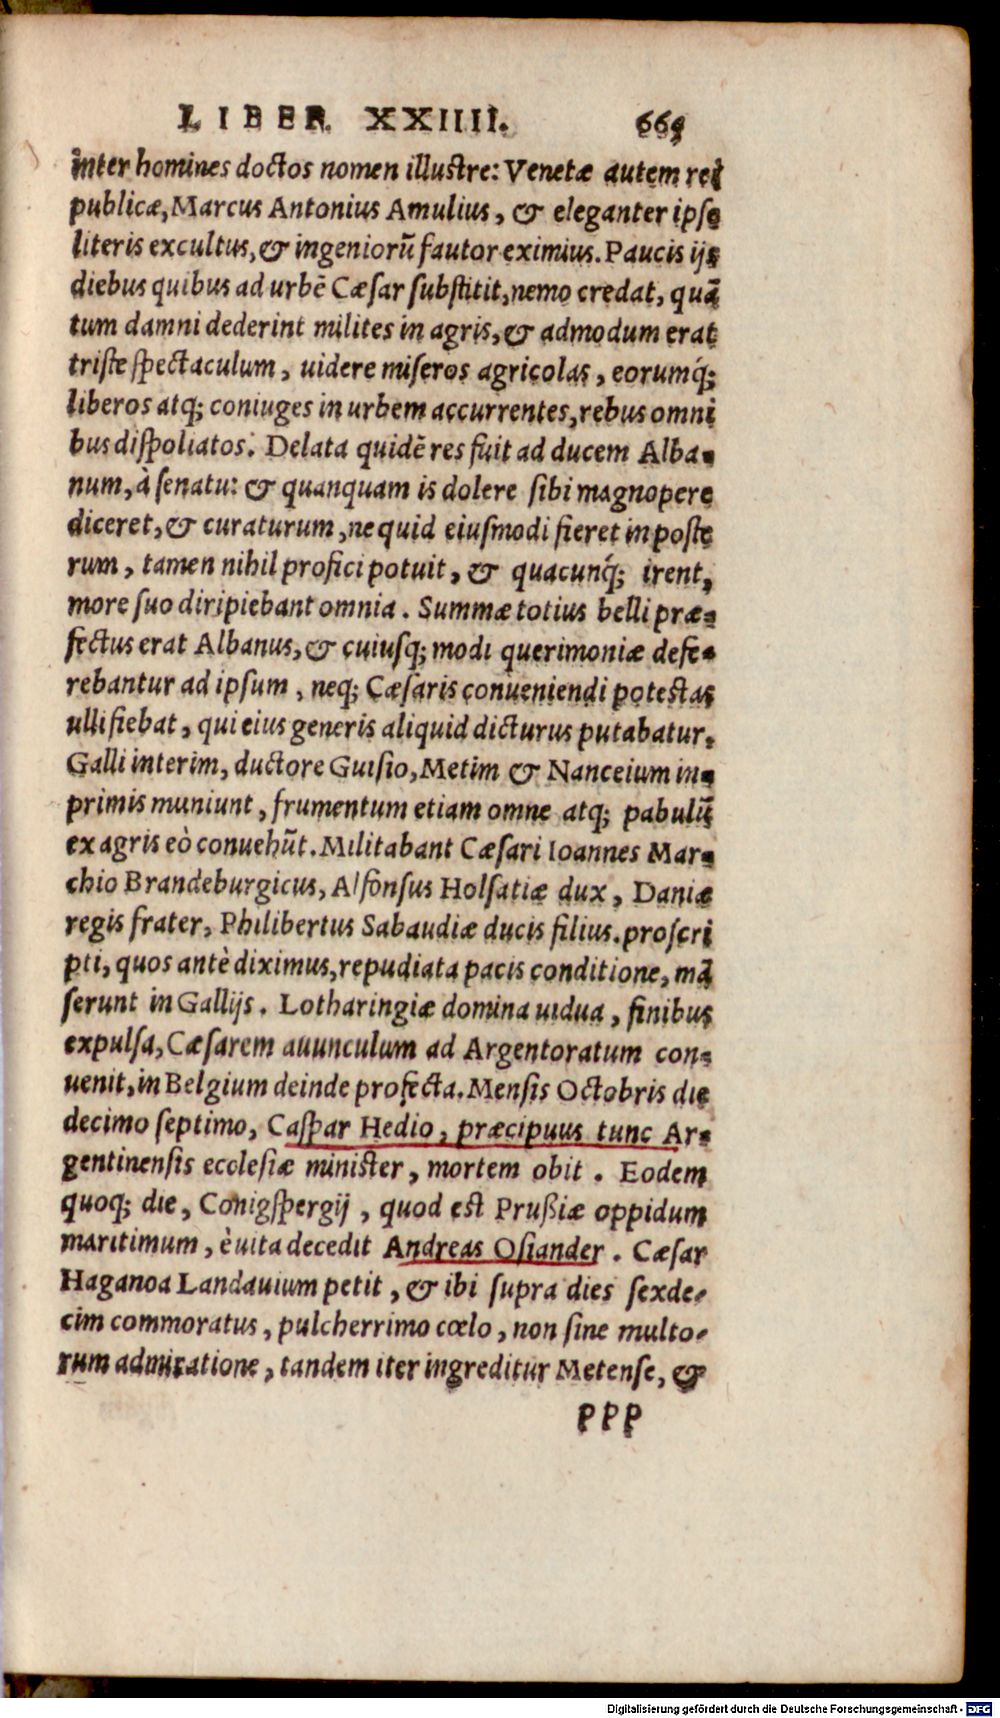 LIBER XXIIII. 665
inter homines doctos nomen illustre: Venetæ autem rei
publicæ, Marcus Antonius Amulius, & eleganter ipse
literis excultus, & ingeniorũ fautor eximius. Paucis ijs
diebus quibus ad urbẽ Cæsar substitit, nemo credat, quã
tum damni dederint milites in agris, & admodum erat
triste spectaculum, uidere miseros agricolas, eorumq́;
liberos atq; coniuges in urbem accurrentes, rebus omni
bus dispoliatos. Delata quidẽ res fuit ad ducem Alba-
num, à senatu: & quanquam is dolere sibi magnopere
diceret, & curaturum, ne quid eiusmodi fieret in poste
rum, tamen nihil profici potuit, & quacunq́; irent,
more suo diripiebant omnia. Summæ totius belli præ-
fectus erat Albanus, & cuiusq; modi querimoniæ defe-
rebantur ad ipsum, neq; Cæsaris conueniendi potestas
ulli fiebat, qui eius generis aliquid dicturus putabatur.
Galli interim, ductore Guisio, Metim & Nanceium in-
primis muniunt, frumentum etiam omne atq; pabulũ
ex agris eò conuehũt. Militabant Cæsari Ioannes Mar-
chio Brandeburgicus, Alfonsus Holsatiæ dux, Daniæ
regis frater, Philibertus Sabaudiæ ducis filius. proscri
pti, quos antè diximus, repudiata pacis conditione, mã
serunt in Gallijs. Lotharingiæ domina uidua, finibus
expulsa, Cæsarem auunculum ad Argentoratum con-
uenit, in Belgium deinde profecta. Mensis Octobris die
decimo septimo, Caspar Hedio, præcipuus tunc Ar-
gentinensis ecclesiæ minister, mortem obit. Eodem
quoq; die, Conigspergij, quod est Prußiæ oppidum
maritimum, è uita decedit Andreas Osiander. Cæsar
Haganoa Landauium petit, & ibi supra dies sexde-
cim commoratus, pulcherrimo cœlo, non sine multo-
rum admiratione, tandem iter ingreditur Metense, &
PPP
Digitalisierung gefördert durch die Deutsche Forschungsgemeinschaft - DFG